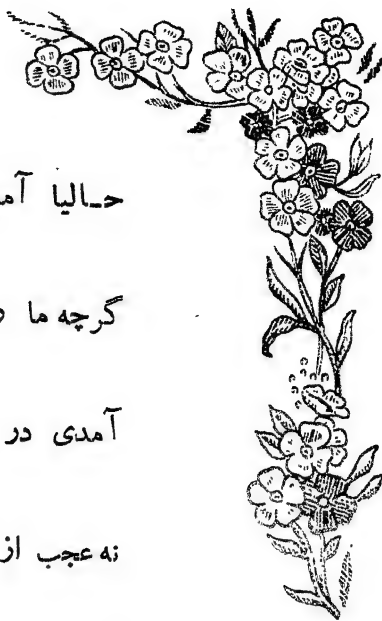 حـالیا آمـ
گرچه ما
آمدی در
نه عجب از